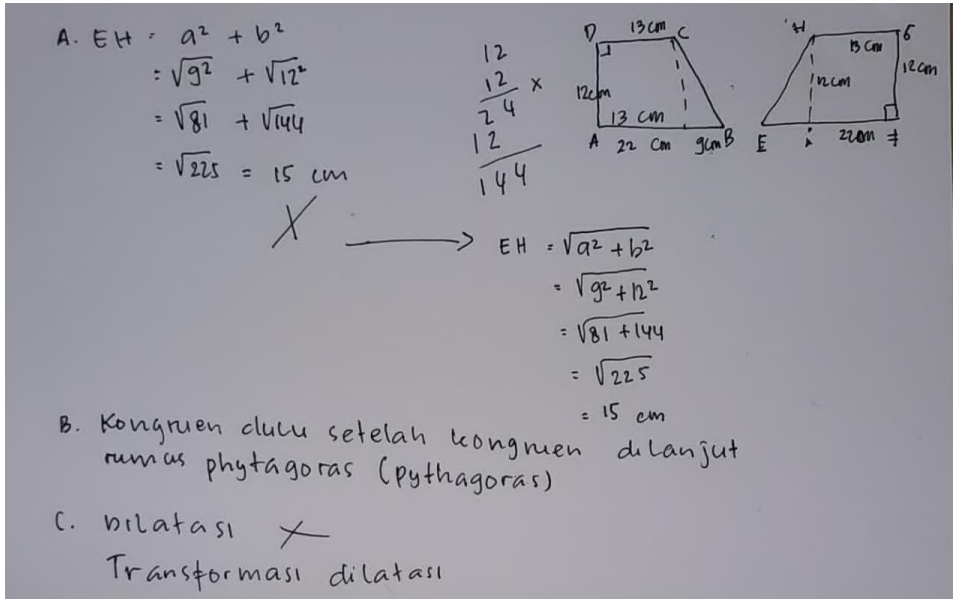 A. EH = a² + b²
= √9² + √12²
= √81 + √144
= √225 = 15 cm
X
12
12 x
24
12
144
D 13 cm C
12cm
13 cm
A 22 cm 9cm B
H G
13 cm
12cm
12cm
E 22cm F
EH = √a² + b²
= √9² + 12²
= √81 + 144
= √225
= 15 cm
B. Kongruen dulu setelah kongruen dilanjut
rumus phytagoras (pythagoras)
C. Dilatasi X
Transformasi dilatasi